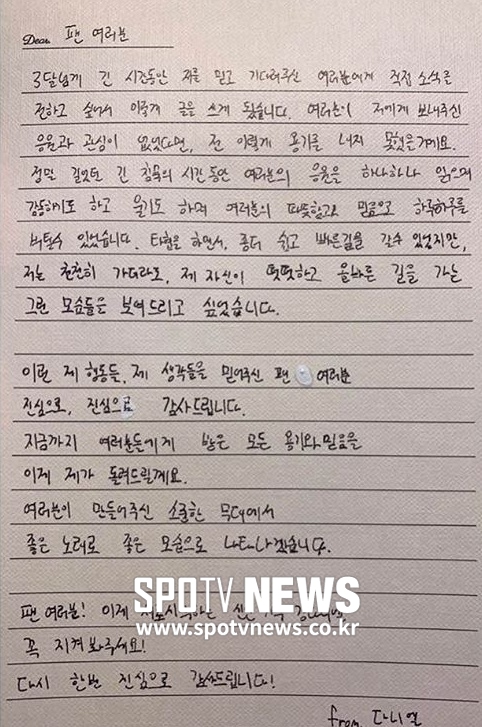 Dear. 팬 여러분
3달넘게 긴 시간동안 저를 믿고 기다려주신 여러분에게 직접 소식을
전하고 싶어서 이렇게 글을 쓰게 됐습니다. 여러분이 저에게 보내주신
응원과 관심이 없었다면, 전 이렇게 용기를 내지 못했을거에요.
정말 길었던 긴 침묵의 시간 동안 여러분의 응원을 하나하나 읽으며
감동하기도 하고 울기도 하며 여러분의 따뜻함과 믿음으로 하루하루를
버틸수 있었습니다. 타협을 하면서, 좀더 쉽고 빠른길을 갈수 있었지만,
저는 천천히 가더라도, 제 자신이 떳떳하고 올바른 길을 가는
그런 모습들을 보여드리고 싶었습니다.
이런 제 행동들, 제 생각들을 믿어주신 팬 여러분
진심으로, 진심으로 감사드립니다.
지금까지 여러분들에게 받은 모든 용기와 믿음을
이제 제가 돌려드릴게요.
여러분이 만들어주신 소중한 무대에서
좋은 노래로 좋은 모습으로 나타나겠습니다.
SPOTV NEWS
팬 여러분! 이제
www.spotvnews.co.kr
꼭 지켜봐주세요!
다시 한번 진심으로 감사드립니다!
from 다니엘